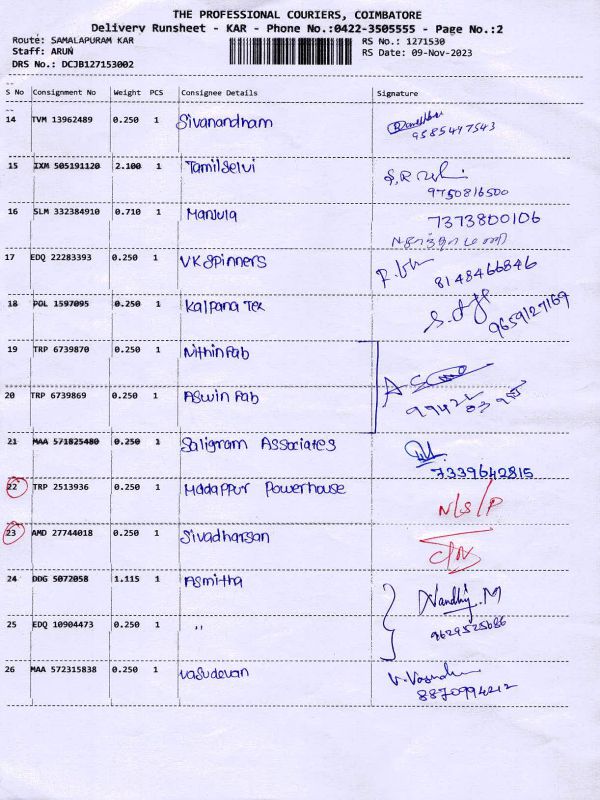 THE PROFESSIONAL COURIERS, COIMBATORE
Delivery Runsheet - KAR - Phone No.:0422-3505555 - Page No.:2
Route: SAMALAPURAM KAR RS No.: 1271530
Staff: ARUN RS Date: 09-Nov-2023
DRS No.: DCJB127153002
S No Consignment No Weight PCS Consignee Details Signature
14 TVM 13962489 0.250 1 Sivanandham
9585497543
15 IXM 505191120 2.100 1 Tamilselvi
9750816500
16 SLM 332384910 0.710 1 Manjula 7373800106
17 EDQ 22283393 0.250 1 VK Spinners
8148466846
18 POL 1597095 0.250 1 Kalpana Tex
9659127169
19 TRP 6739870 0.250 1 Nithin Fab
20 TRP 6739869 0.250 1 Aswin Fab
21 MAA 571825480 0.250 1 Saligram Associates
7339642815
22 TRP 2513936 0.250 1 Madappur Powerhouse N/S/P
23 AMD 27744018 0.250 1 Sivadharsan C/N
24 DDG 5072058 1.115 1 Asmitha Nandhij.M
25 EDQ 10904473 0.250 1 ,, 9629525686
26 MAA 572315838 0.250 1 Vasudevan
8870994212